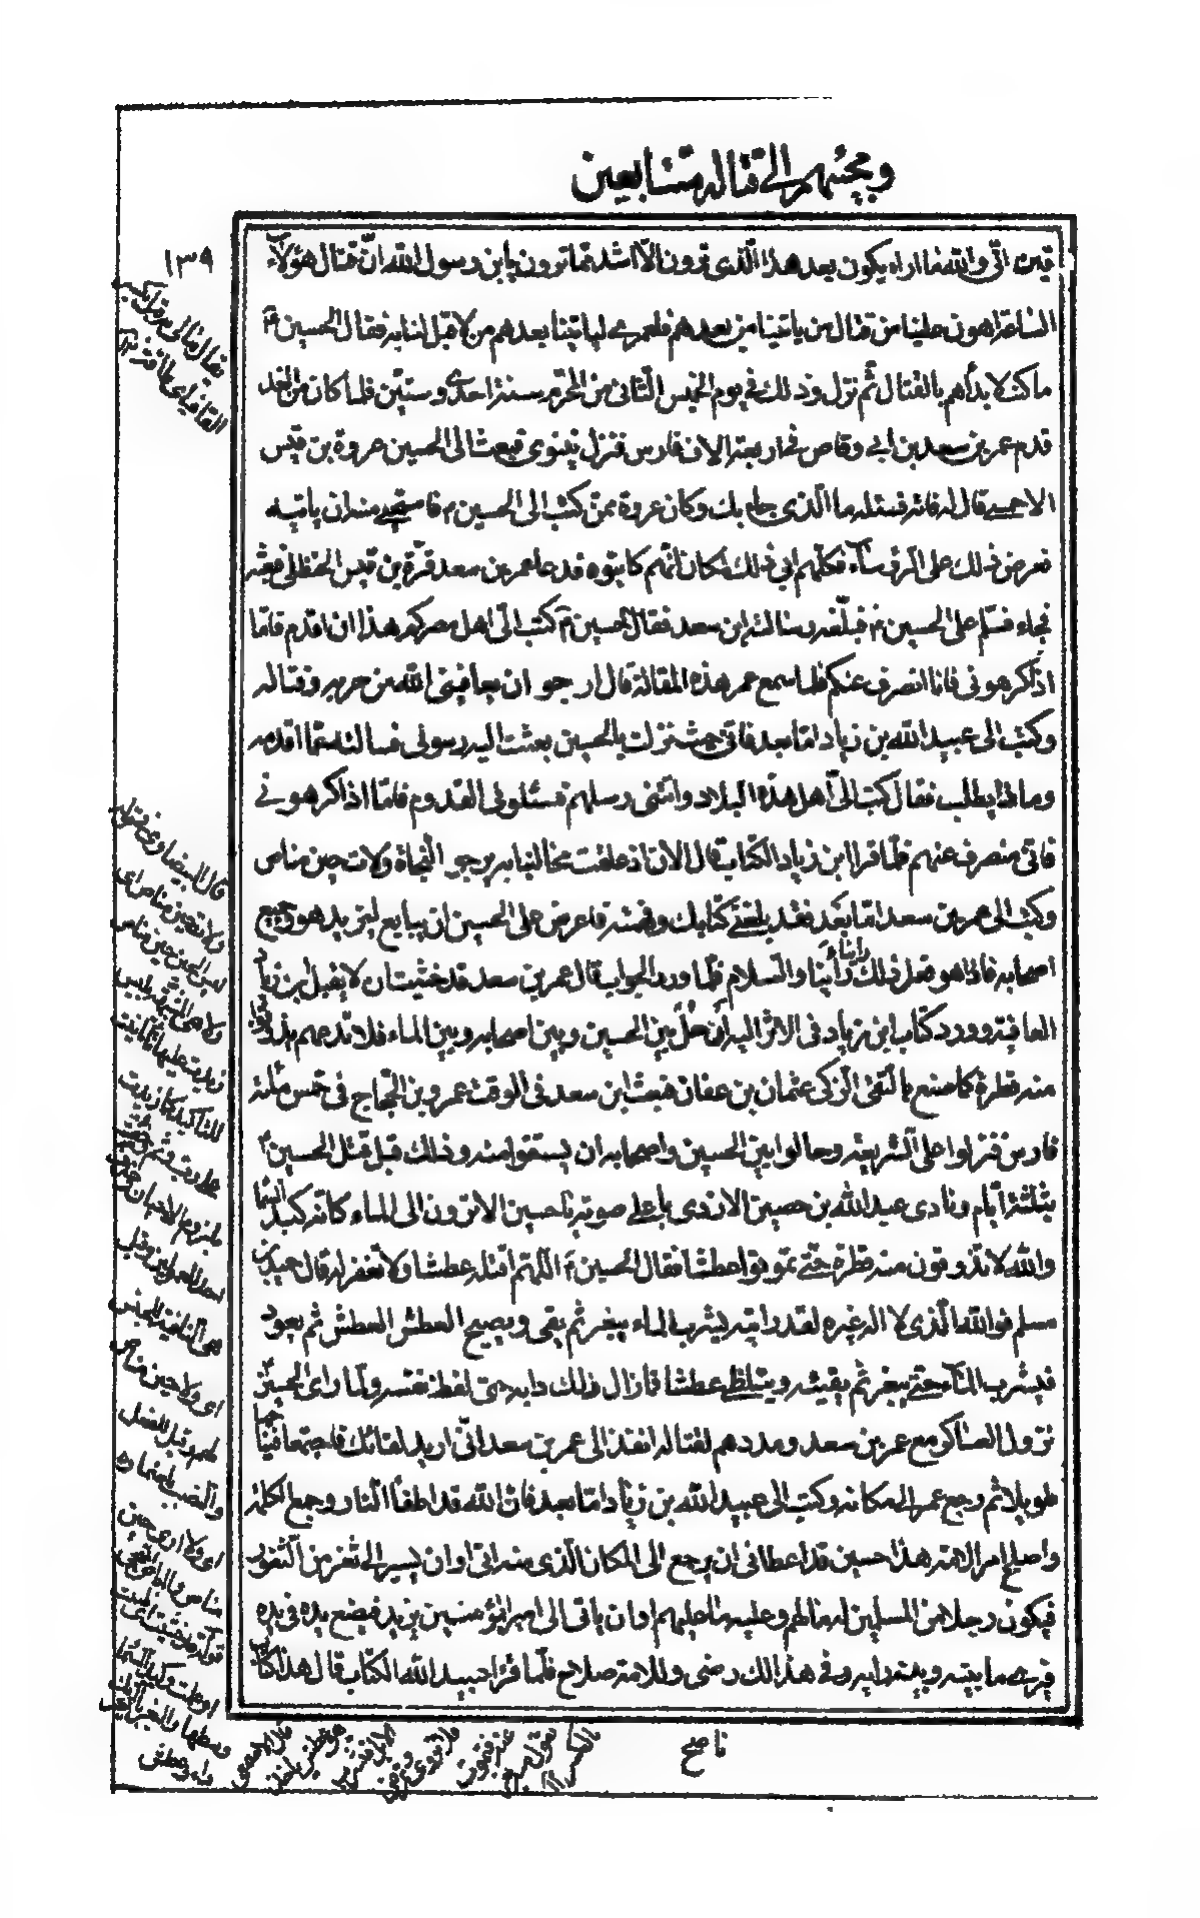 ومجيئهم الى قتاله متتابعين
١٣٩
قين انى والله ما اراه يكون بعد هذا الذى ترون الا اشد مما ترون يابن رسول الله ان قتال هؤلاء
الساعة اهون علينا من قتال من ياتينا من بعدهم فلعمرى لياتينا بعدهم من لا قبل لنا به فقال الحسين ع
ما كنت لابدأهم بالقتال ثم نزل وذلك فى يوم الخميس الثانى من المحرم سنة احدى وستين فلما كان من الغد
قدم عمر بن سعد بن ابى وقاص فى اربعة الاف فارس فنزل نينوى فبعث الى الحسين عروة بن قيس
الاحمسى قال له فاته فسئله ما الذى جاء بك وكان عروة ممن كتب الى الحسين ع فاستحيى منه ان ياتيه
فعرض ذلك على الرؤساء فكلهم ابى ذلك لمكان انهم كاتبوه فدعا عمر بن سعد قرة بن قيس الحنظلى فبعثه
فجاء فسلم على الحسين ع فبلغه رسالة ابن سعد فقال الحسين ع كتب الى اهل مصركم هذا ان اقدم فاما
اذ اكرهونى فانا انصرف عنكم فلما سمع عمر هذه المقالة قال ارجو ان يعافينى الله من حربه وقتاله
وكتب الى عبيد الله بن زياد اما بعد فانى حيث نزلت بالحسين بعثت اليه رسولى فسالته عما اقدمه
وماذا يطلب فقال كتب الى اهل هذه البلاد واتتنى رسلهم فسئلونى القدوم فاما اذا كرهونى
فانى منصرف عنهم فلما قرا ابن زياد الكتاب قال الان اذ علقت مخالبنا به يرجو النجاة ولات حين مناص
وكتب الى عمر بن سعد اما بعد فقد بلغنى كتابك وفهمته فاعرض على الحسين ان يبايع ليزيد هو وجميع
اصحابه فاذا هو فعل ذلك رأينا والسلام فلما ورد الجواب قال عمر بن سعد قد خشيت ان لا يقبل ابن زياد
العافية وورد كتاب ابن زياد فى الاثر اليه ان حُل بين الحسين وبين اصحابه وبين الماء فلا تدعهم يذوقوا
منه قطرة كما صنع بالتقى الزكى عثمان بن عفان فبعث ابن سعد فى الوقت عمرو بن الحجاج فى خمس مائة
فارس فنزلوا على الشريعة وحالوا بين الحسين واصحابه ان يستقوا منه وذلك قبل قتل الحسين ع
بثلثة ايام ونادى عبد الله بن حصين الازدى باعلى صوته يا حسين الا ترون الى الماء كانه كبد السماء
والله لا تذوقون منه قطرة حتى تموتوا عطشا فقال الحسين ع اللهم اقتله عطشا ولا تغفر له قال حميد بن
مسلم فوالله الذى لا اله غيره لقد رايته يشرب الماء يبغر ثم يقى ويصيح العطش العطش ثم يعود
فيشرب الماء حتى يبغر ثم يقيئه ويتلظى عطشا فما زال ذلك دابه حتى لفظ نفسه ولما راى الحسين ع
نزول العساكر مع عمر بن سعد ومددهم لقتاله انفذ الى عمر بن سعد انى اريد لقائك فاجتمعا فتناجيا
طويلا ثم رجع عمر الى مكانه وكتب الى عبيد الله بن زياد اما بعد فان الله قد اطفأ النار وجمع الكلمة
واصلح امر الامة هذا حسين قد اعطانى ان يرجع الى المكان الذى منه اتى او ان يسير الى ثغر من الثغور
فيكون رجلا من المسلمين له ما لهم وعليه ما عليهم او ان ياتى الى امير المؤمنين يزيد فيضع يده فى يده
فيرى فيما بينه وبينه رايه وفى هذا لك رضى وللامة صلاح فلما قرأ عبيد الله الكتاب قال هذا كتاب
ناصح
قال البيضاوى قوله
ولات حين مناص اى
ليس الحين حين مناص
ولا هى المشبهة بليس
زيدت عليها تاء التانيث
للتاكيد كما زيدت
على رب وثم
بلزوم الاحيان
وقيل
هى النافية للجنس
اى ولا حين مناص
لهم وقيل للفعل
والنصب باضماره
اى ولا ارى حين
مناص